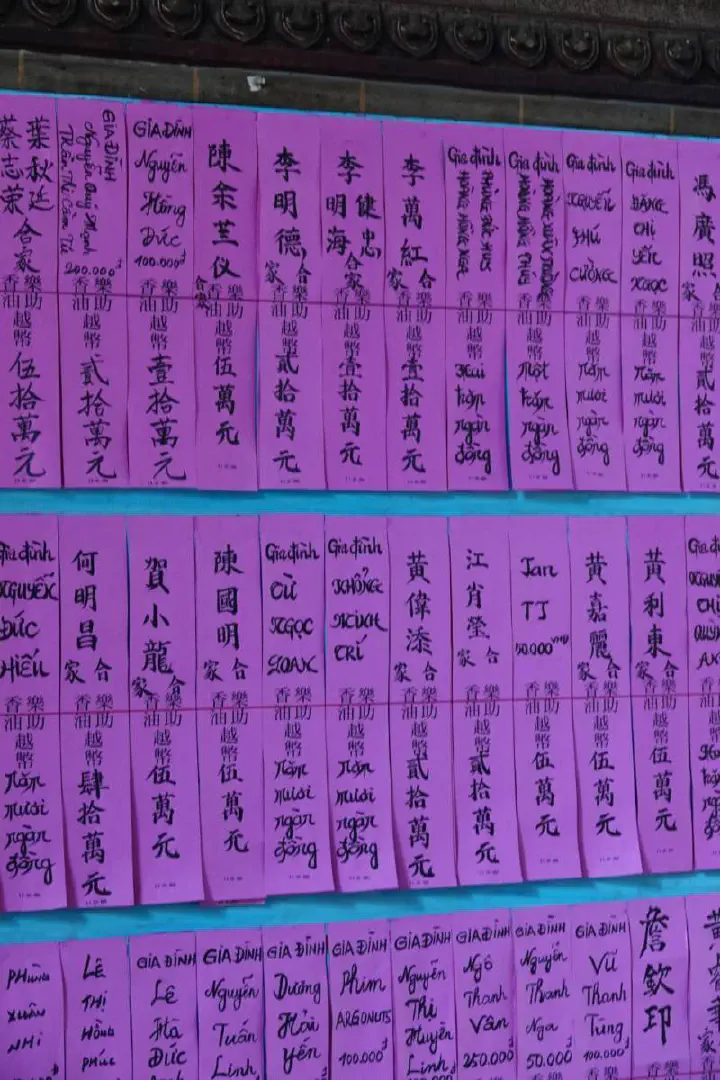 葉秋廷
蔡志荣
合家
樂助
香油
越幣
伍拾萬元
GIA ĐÌNH
Nguyễn Quý Mạnh
Trần Thị Cẩm Tú
200.000đ
樂助
香油
越幣
貳拾萬元
GIA ĐÌNH
Nguyễn
Hồng
Đức
100.000đ
樂助
香油
越幣
壹拾萬元
陳余芸仪
合家
樂助
香油
越幣
伍萬元
李明德
合家
樂助
香油
越幣
貳拾萬元
李健忠
明海
合家
樂助
香油
越幣
壹拾萬元
李萬紅
合家
樂助
香油
越幣
壹拾萬元
Gia đình
樂助
香油
越幣
Hai
trăm
ngàn
đồng
Gia đình
樂助
香油
越幣
Một
trăm
ngàn
đồng
Gia đình
NGUYỄN
PHÚ
CƯỜNG
樂助
香油
越幣
Năm
mươi
ngàn
đồng
Gia đình
ĐẶNG
THỊ
YẾN
NGỌC
樂助
香油
越幣
Năm
mươi
ngàn
đồng
馮廣照
合家
樂助
香油
越幣
貳拾萬元
Gia đình
NGUYỄN
ĐỨC
HIẾU
樂助
香油
越幣
Năm
mươi
ngàn
đồng
何明昌
合家
樂助
香油
越幣
肆拾萬元
賀小龍
合家
樂助
香油
越幣
伍萬元
陳國明
合家
樂助
香油
越幣
伍萬元
Gia đình
TỪ
NGỌC
LOAN
樂助
香油
越幣
Năm
mươi
ngàn
đồng
Gia đình
KHỔNG
MINH
TRÍ
樂助
香油
越幣
Năm
mươi
ngàn
đồng
黃偉添
合家
樂助
香油
越幣
貳拾萬元
江肖瑩
合家
樂助
香油
越幣
貳拾萬元
Tan
TJ
50.000 VNĐ
樂助
香油
越幣
伍萬元
黃嘉麗
合家
樂助
香油
越幣
伍萬元
黃利東
合家
樂助
香油
越幣
伍萬元
PHÙNG
XUÂN
NHI
LÊ
THỊ
HỒNG
PHÚC
GIA ĐÌNH
Lê
Hà
Đức
GIA ĐÌNH
Nguyễn
Tuấn
Linh
GIA ĐÌNH
Dương
Hải
Yến
GIA ĐÌNH
Phim
ARGONUTS
100.000đ
GIA ĐÌNH
Nguyễn
Thị
Huyền
Linh
GIA ĐÌNH
Ngô
Thanh
Vân
250.000đ
GIA ĐÌNH
Nguyễn
Thanh
Nga
50.000đ
GIA ĐÌNH
Vũ
Thanh
Tùng
100.000đ
詹欽印